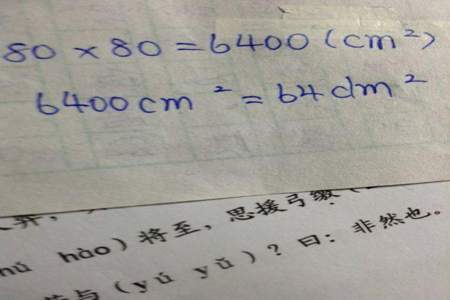 80 × 80 = 6400 (cm²)
6400 cm² = 64 dm²
弈,
hú hào) 将至,思援弓缴(
与(yú yǔ)?曰:非然也。